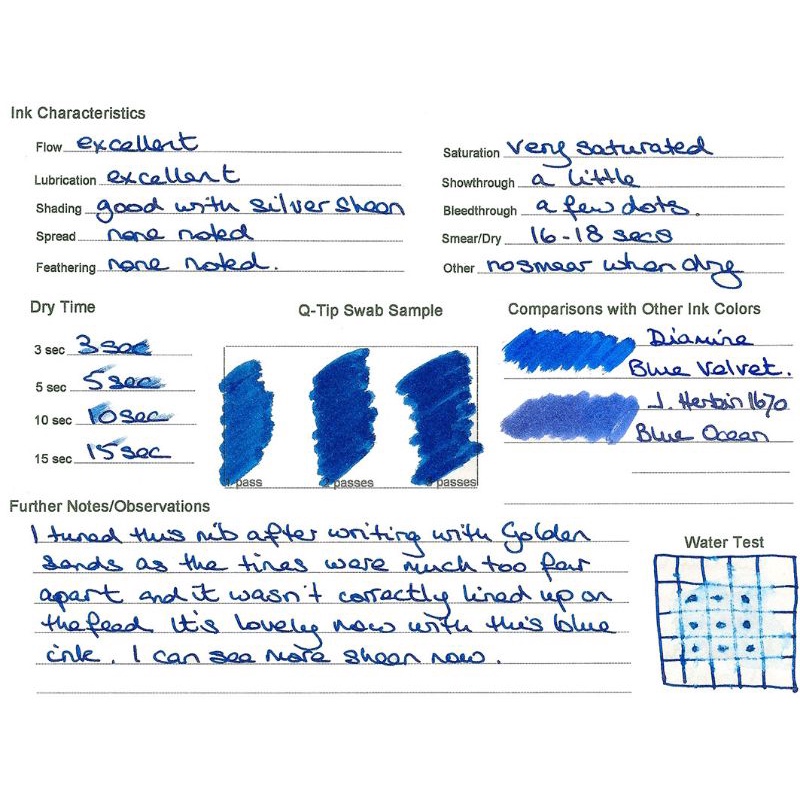 Ink Characteristics
Flow excellent
Lubrication excellent
Shading good with silver sheen
Spread none noted
Feathering none noted.
Saturation very saturated
Showthrough a little
Bleedthrough a few dots.
Smear/Dry 16-18 secs
Other no smear when dry
Dry Time
3 sec 3 sec
5 sec 5 sec
10 sec 10 sec
15 sec 15 sec
Q-Tip Swab Sample
1 pass 2 passes 3 passes
Comparisons with Other Ink Colors
Diamine
Blue Velvet.
J. Herbin 1670
Blue Ocean
Further Notes/Observations
I tuned this nib after writing with Golden
Sands as the tines were much too far
apart and it wasn't correctly lined up on
the feed. It's lovely now with this blue
ink. I can see more sheen now.
Water Test